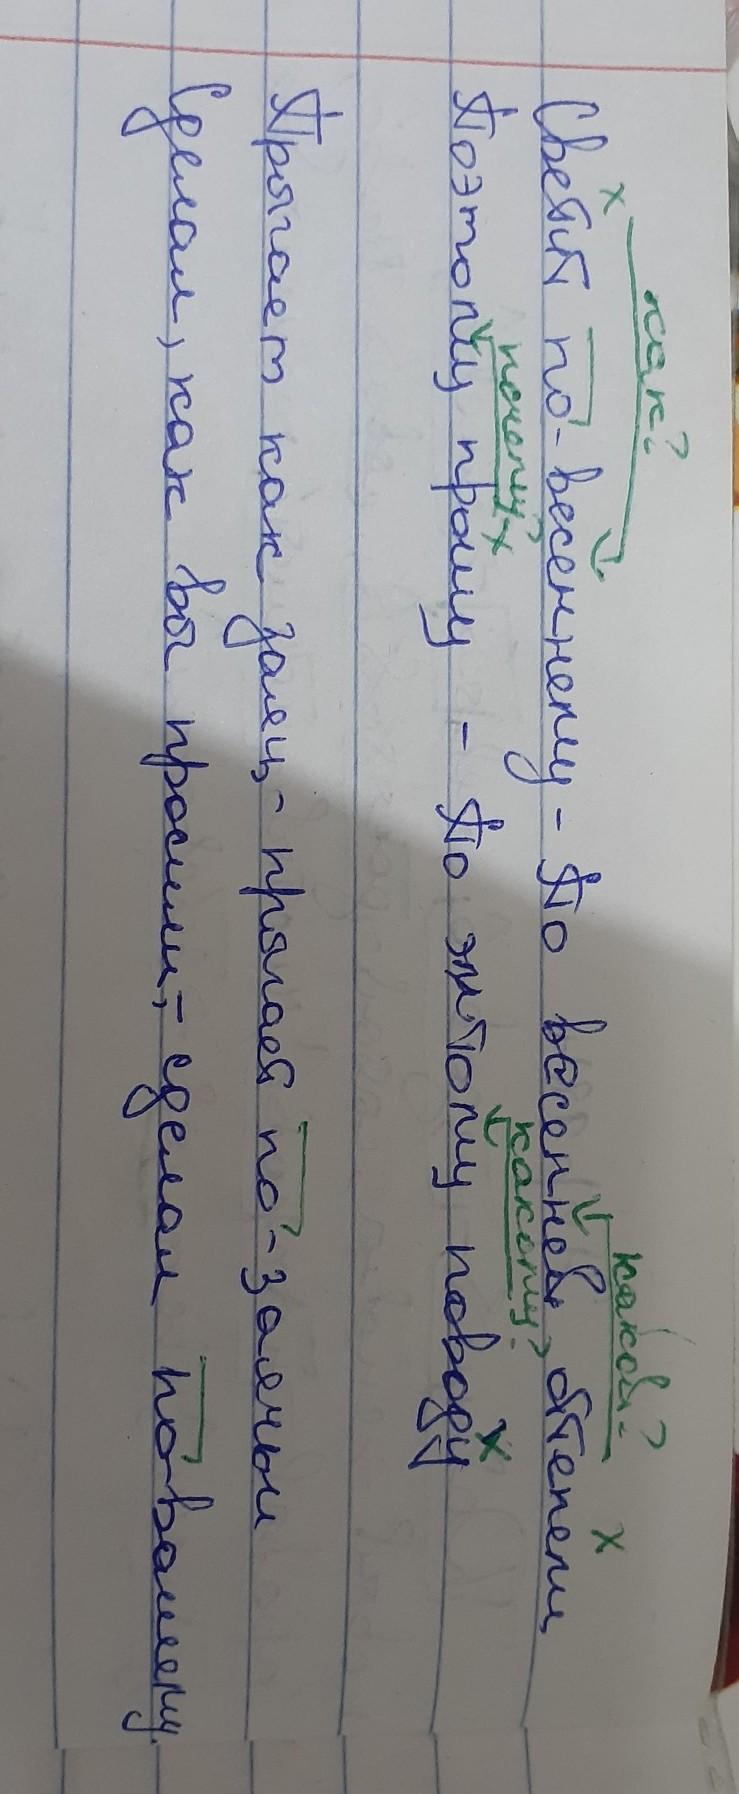 как?
Светит по-весеннему - По весенней степи,
почему?
какой?
Поэтому прошу - По этому поводу
какому?
Прыгает как заяц, - прыгает по-заячьи
Сделал, как вы просили, - сделал по-вашему.